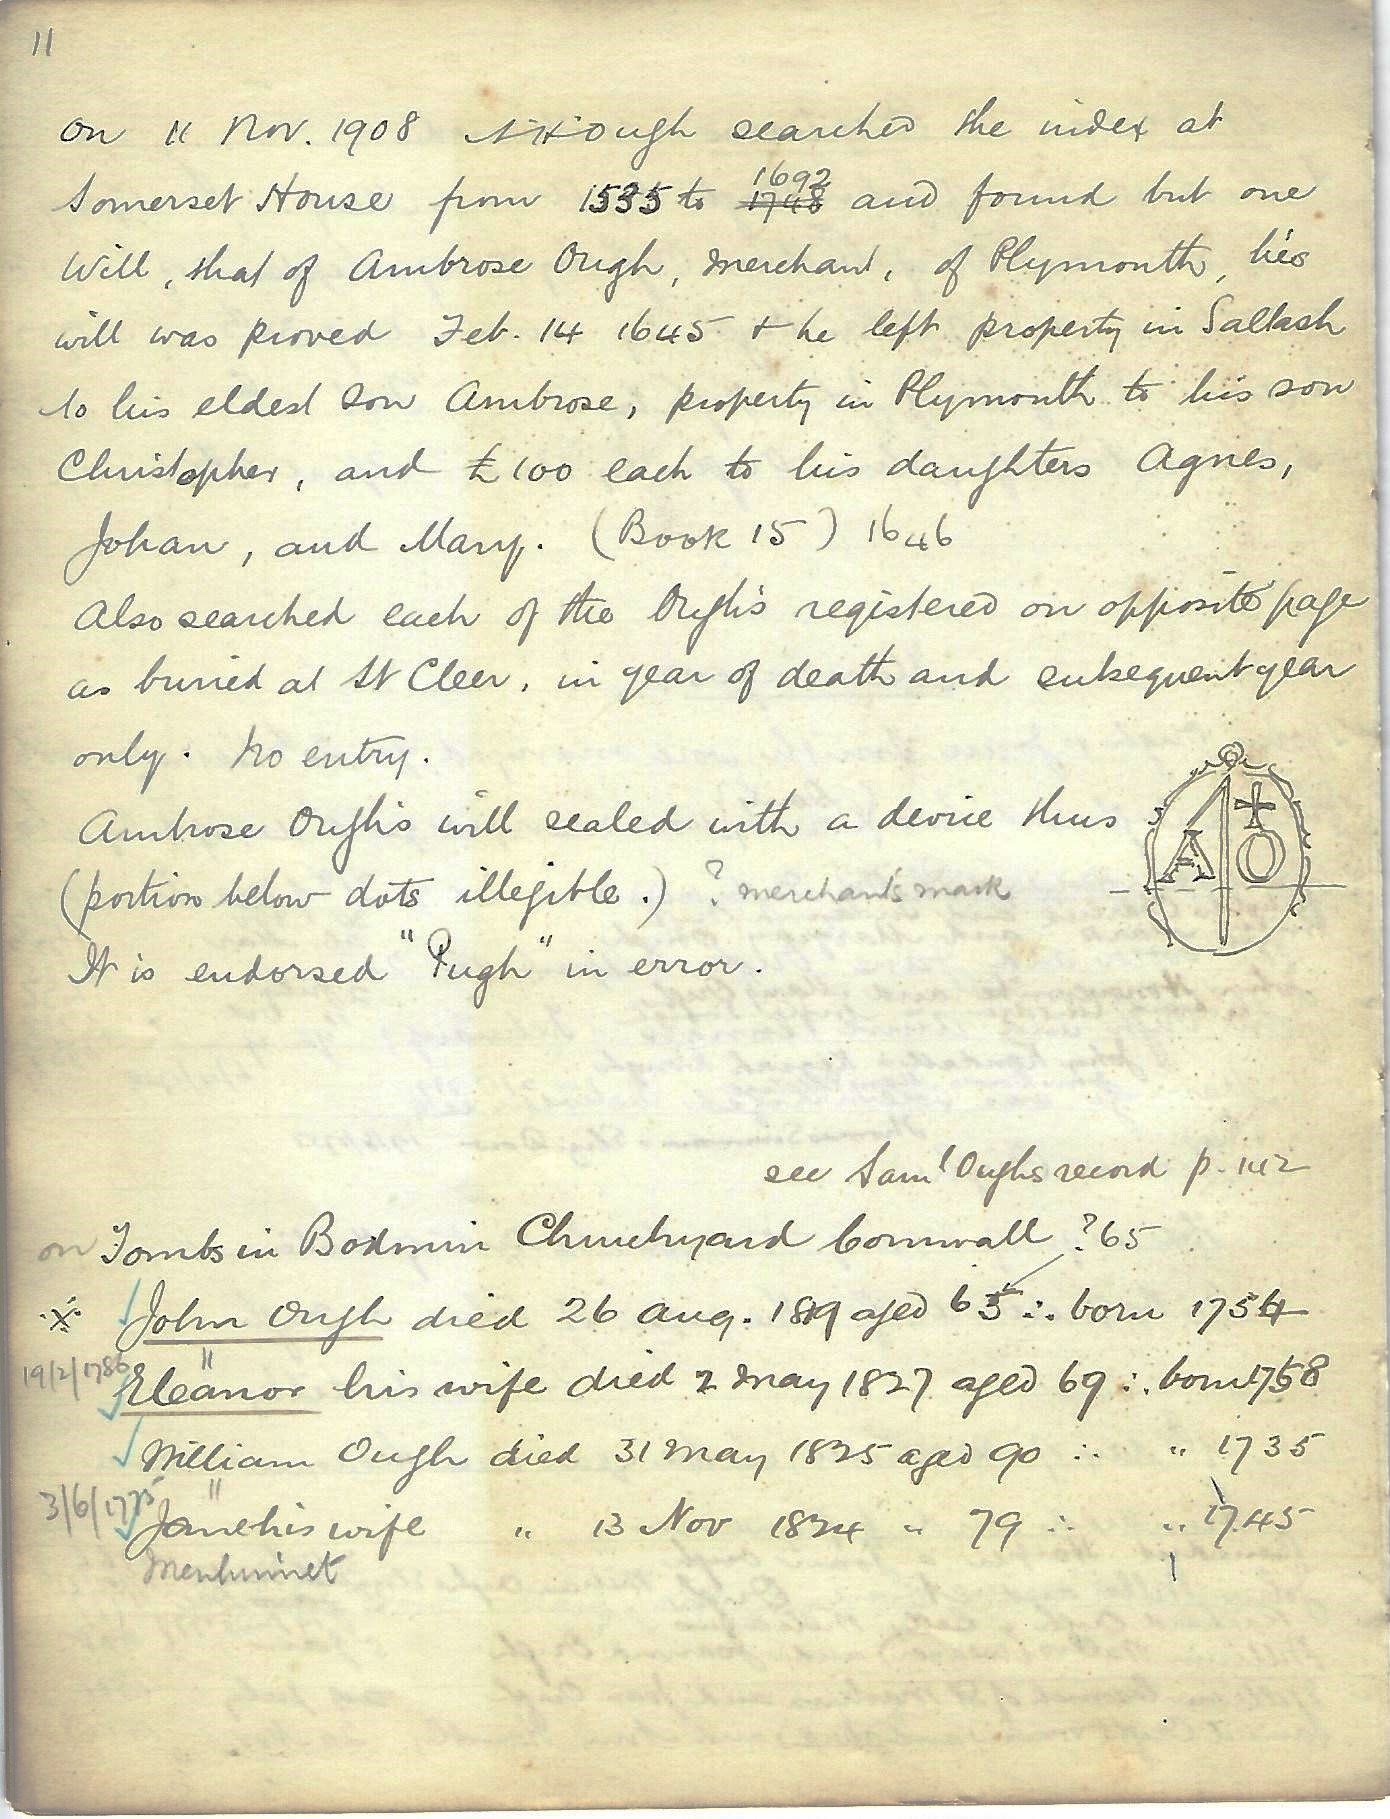 11
On 11 Nov. 1908 Ough searched the index at
1692
Somerset House from 1535 to 1748 and found but one
Will, that of Ambrose Ough, Merchant, of Plymouth, his
will was proved Feb. 14 1645 + he left property in Saltash
to his eldest son Ambrose, property in Plymouth to his son
Christopher, and £100 each to his daughters Agnes,
Johan, and Mary. (Book 15) 1646
Also searched each of the Ough's registered on opposite page
as buried at St Cleer, in year of death and subsequent year
only. No entry.
Ambrose Ough's will sealed with a device thus
A O
(portion below dots illegible.) ? merchant's mark
It is endorsed "Pugh" in error.
see Saml Oughs record p. 142
on Tombs in Bodmin Churchyard Cornwall ?65
John Ough died 26 Aug. 1819 aged 65 ∴ born 1754
19/2/1786 Eleanor " his wife died 2 May 1827 aged 69 ∴ born 1758
William Ough died 31 May 1825 aged 90 ∴ " 1735
3/6/1775 Jane " his wife " 13 Nov 1824 " 79 ∴ " 1745
Menhinnet